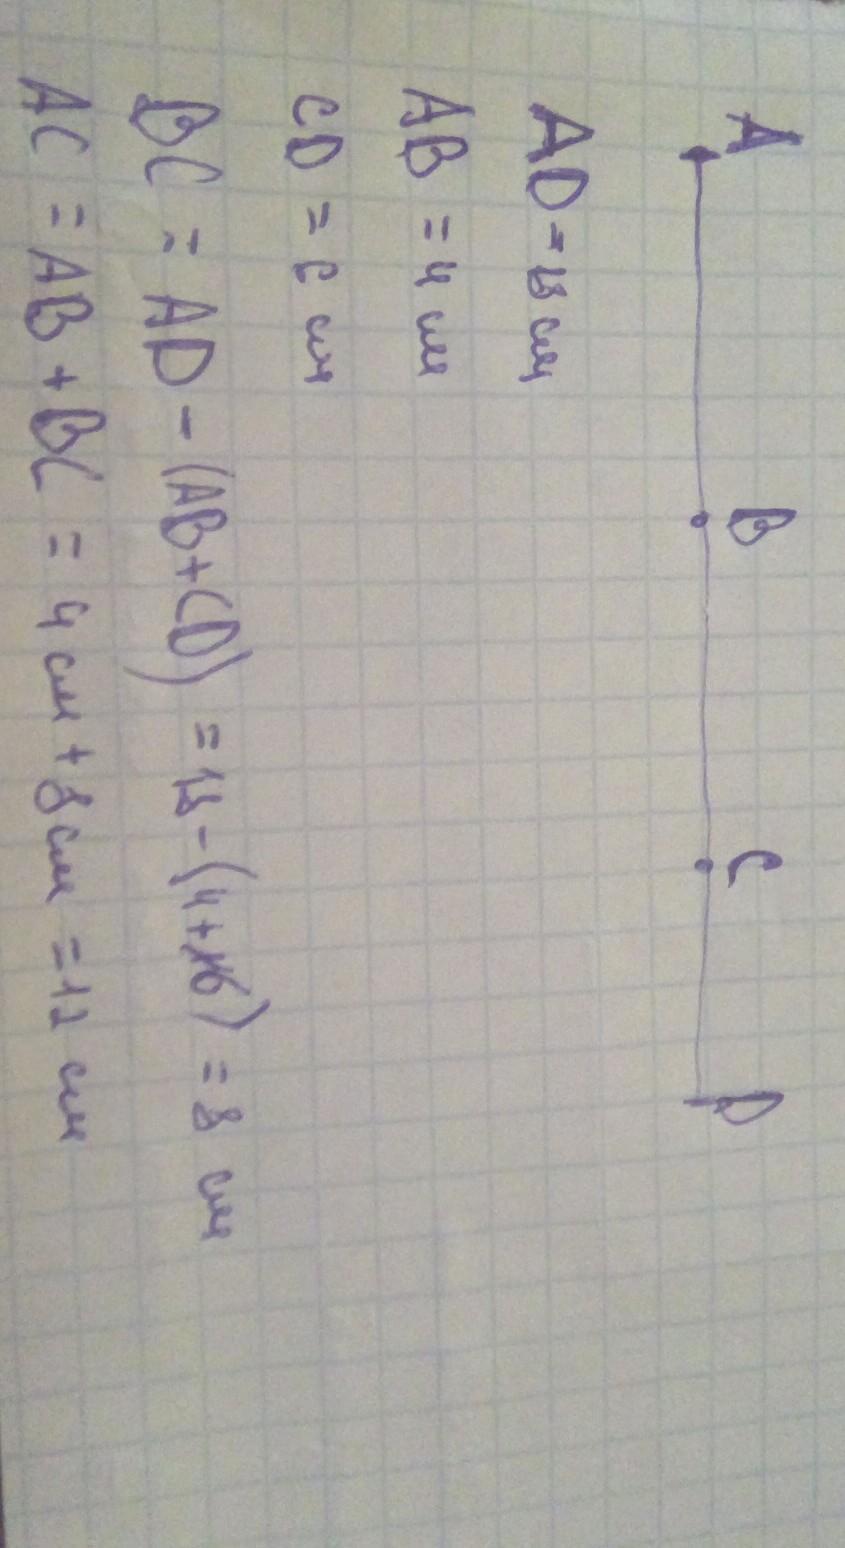 A B C D
AD = 18 см
AB = 4 см
CD = 6 см
BC = AD - (AB + CD) = 18 - (4 + 6) = 8 см
AC = AB + BC = 4 см + 8 см = 12 см